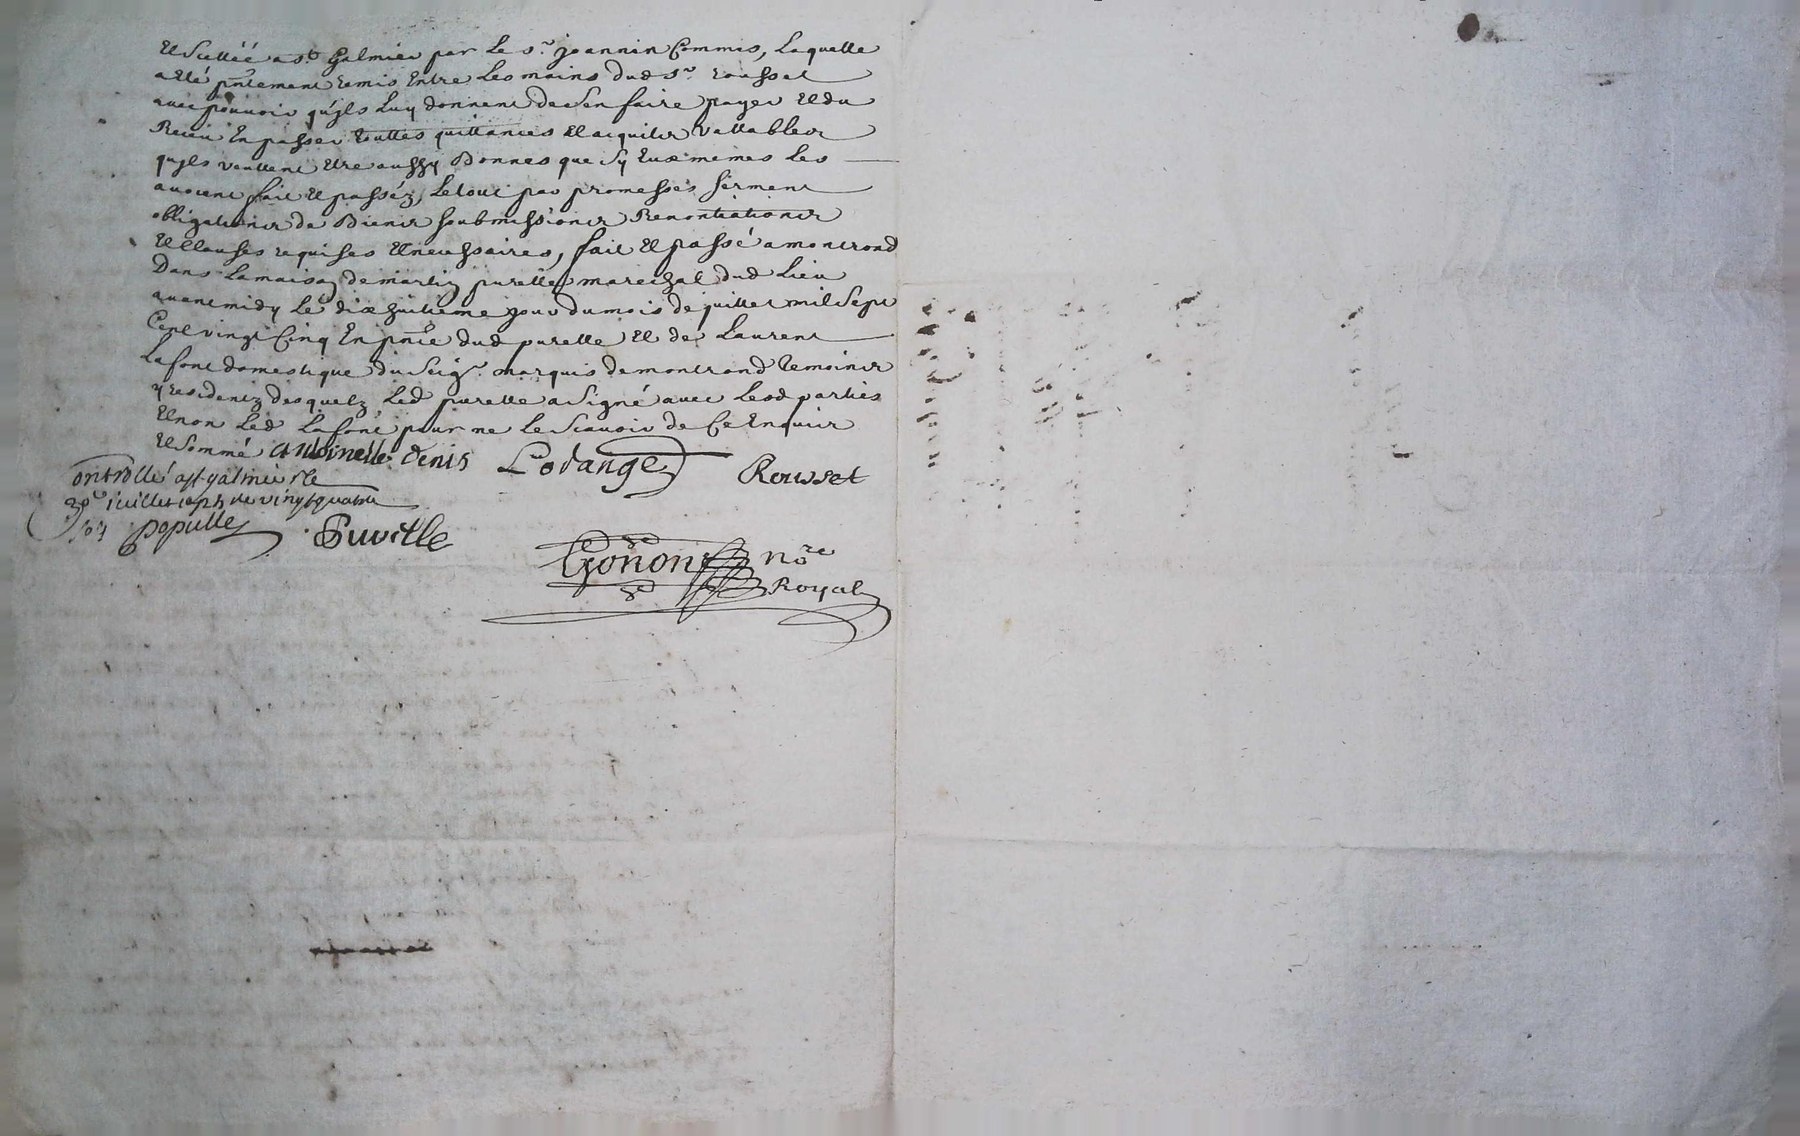 Et Scellée a st Galmier par Le sr. joannin Commis, Laquelle
a eté pntement remis Entre Les mains dud sr. rousset
avec pouvoir qu'jls Luy donnent de sen faire payer Et du
Receu En passer touttes quittances Et acquits vallables
qujls veullent Etre aussy Bonnes que sy Eux memes Les
avoient fait Et passéz, Le tout par promesses serment
obligations de Biens soubmissions Renontiations
Et Clauses requises Et necessaires, fait Et passé a montrond
Dans La maison de martin purelle marechal dud Lieu
avant midy Le dixhuitieme jour du mois de juillet mil sept
Cent vingt Cinq En pnce dud purelle Et de Laurent
Lafont domestique du Seigr. marquis de montrond temoins
y residentz desquelz Led purelle a signé avec Lesd parties
Et non Led Lafont pour ne Le scavoir de Ce Enquis
Et Sommé Antoinette denis Lodange Rousset
ontrollé a st galmier le
juillet sept
populle
Gonon nore
Royal